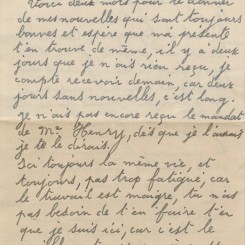 Voici deux mots pour te donner
de mes nouvelles qui sont toujours
bonnes et espère que ma présente
t'en trouve de même, il y a deux
jours que je n'ais rien reçu, je
compte recevoir demain, car deux
jours sans nouvelles, c'est long.
je n'ais pas encore reçu le mandat
de Mr Henry, dès que je l'aurai
je te le dirais.
Ici toujours la même vie, et
toujours, pas trop fatigué, car
le travail est maigre, tu n'as
pas besoin de t'en faire t'en
que je suis ici, car c'est le